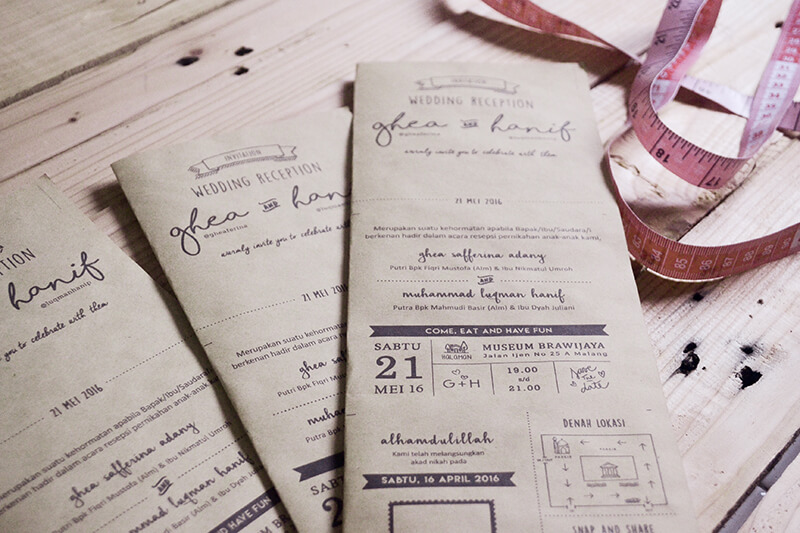 INVITATION
WEDDING RECEPTION
ghea AND hanif
@gheaferina
warmly invite you to celebrate with them
21 MEI 2016
Merupakan suatu kehormatan apabila Bapak/Ibu/Saudara/i
berkenan hadir dalam acara resepsi pernikahan anak-anak kami,
ghea safferina adany
Putri Bpk Fiqri Mustofa (Alm) & Ibu Nikmatul Umroh
AND
muhammad luqman hanif
Putra Bpk Mahmudi Basir (Alm) & Ibu Dyah Juliani
COME, EAT AND HAVE FUN
SABTU
21
MEI 16
HALAMAN
MUSEUM BRAWIJAYA
Jalan Ijen No 25 A Malang
G+H
19.00
s/d
21.00
Save
The
Date
alhamdulillah
Kami telah melangsungkan
akad nikah pada
SABTU, 16 APRIL 2016
DENAH LOKASI
PARKIR
PARKIR
SNAP AND SHARE
INVITATION
WEDDING RECEPTION
ghea AND hani
@gheaferina
warmly invite you to celebrate with
21 MEI 2016
Merupakan suatu kehormatan
berkenan hadir dalam acara
ghea
Putri Bpk Fiqri
muham
Putra Bpk
SABTU
21
MEI 16
PTION
hanif
@luqmanhanip
you to celebrate with them
21 MEI 2016
Merupakan suatu kehormatan apabila Bapak/Ibu/Saudara/i
berkenan hadir dalam acara resepsi pernikahan anak-anak
ghea safferina adany
Putri Bpk Fiqri Mustofa (Alm) & Ibu Nikmatul Umroh
AND
muhammad luqman hanif
Basir (Alm) & Ibu Dyah
AND HAVE FUN